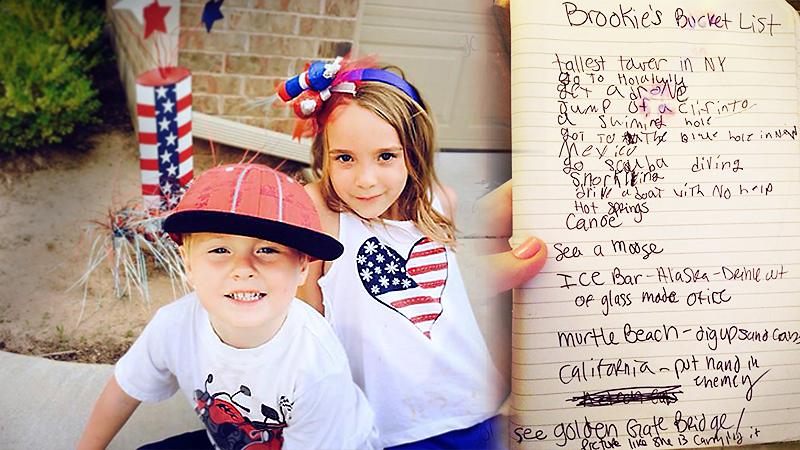 Brookie's Bucket List
tallest tower in NY
go to Holalyily
get a drone
Jump of a Clif into
a suiming hole
got to the blue hole in New
Mexico
go scuba diving
snorkling
drive a boat with No help
Hot Springs
Canoe
see a moose
ICE Bar - Alaska - Drink out
of glass made of ice
Murtle Beach - dig up sand Crabs
California - put hand in
see golden Gate Bridge/
picture like she is carrying it